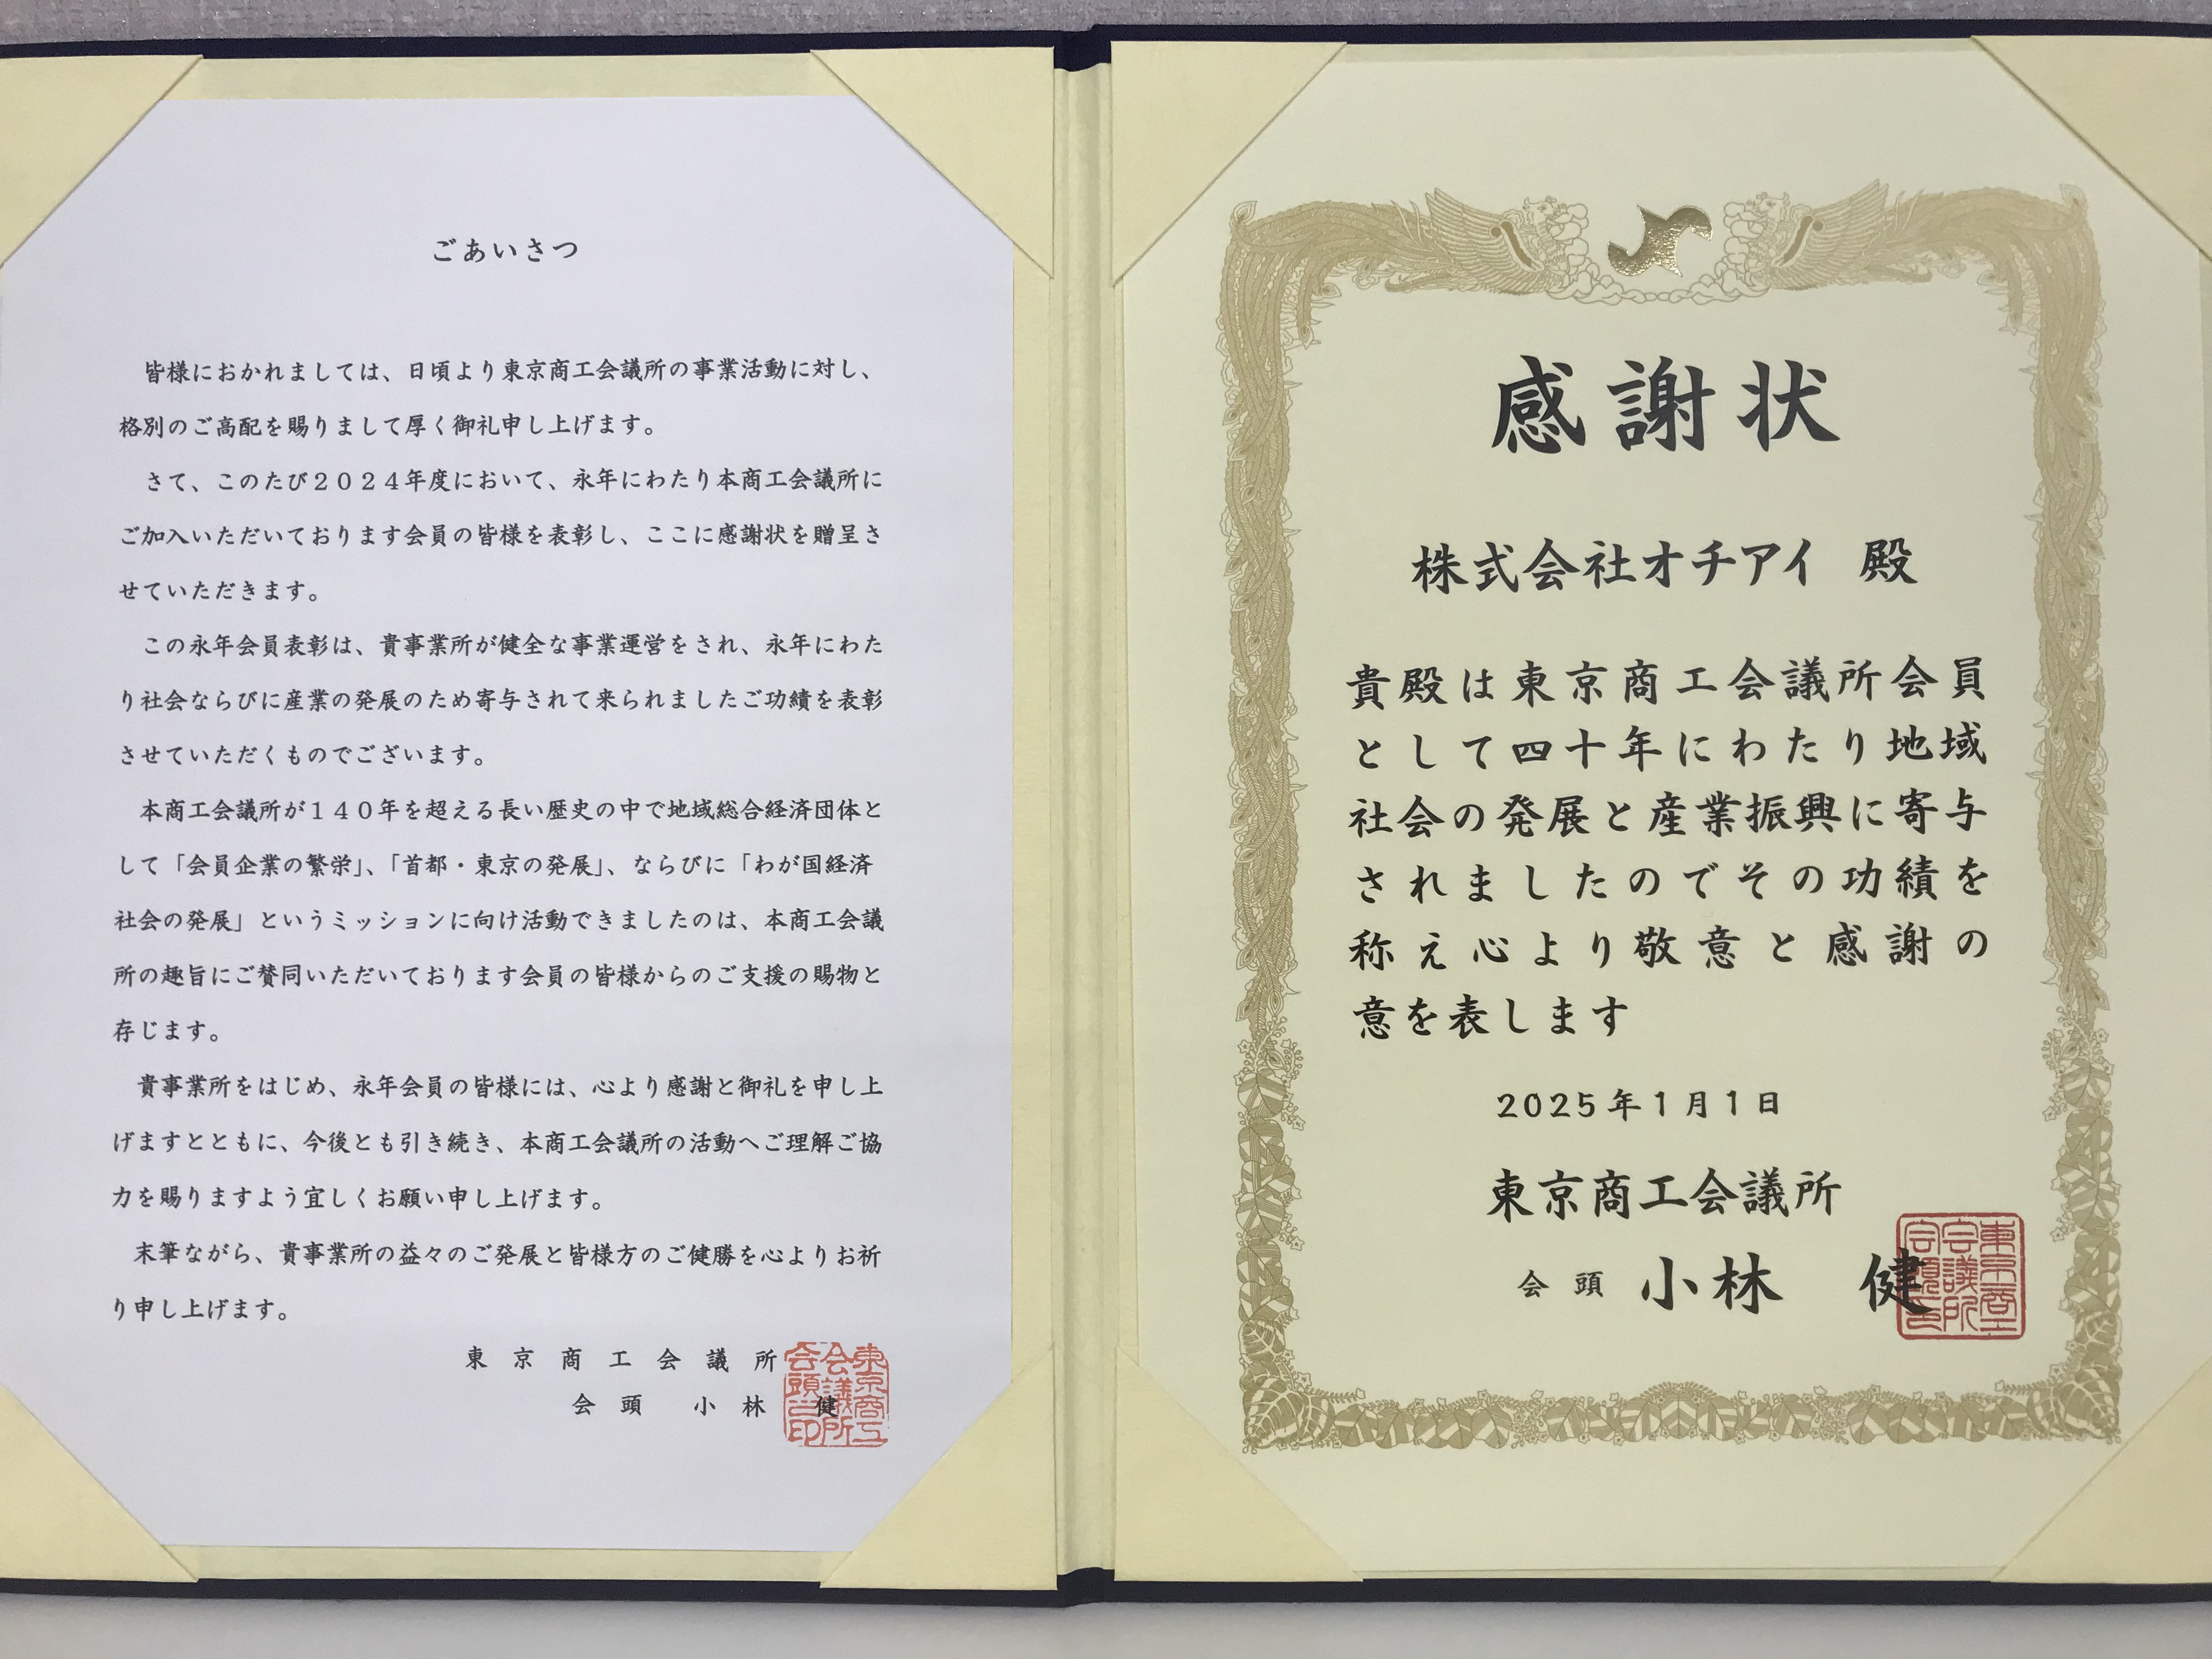 ごあいさつ
皆様におかれましては、日頃より東京商工会議所の事業活動に対し、
格別のご高配を賜りまして厚く御礼申し上げます。
さて、このたび２０２４年度において、永年にわたり本商工会議所に
ご加入いただいております会員の皆様を表彰し、ここに感謝状を贈呈さ
せていただきます。
この永年会員表彰は、貴事業所が健全な事業運営をされ、永年にわた
り社会ならびに産業の発展のため寄与されて来られましたご功績を表彰
させていただくものでございます。
本商工会議所が１４０年を超える長い歴史の中で地域総合経済団体と
して「会員企業の繁栄」、「首都・東京の発展」、ならびに「わが国経済
社会の発展」というミッションに向け活動できましたのは、本商工会議
所の趣旨にご賛同いただいております会員の皆様からのご支援の賜物と
存じます。
貴事業所をはじめ、永年会員の皆様には、心より感謝と御礼を申し上
げますとともに、今後とも引き続き、本商工会議所の活動へご理解ご協
力を賜りますよう宜しくお願い申し上げます。
末筆ながら、貴事業所の益々のご発展と皆様方のご健勝を心よりお祈
り申し上げます。
東京商工会議所
会頭 小林 健
東京商工
会議所
会頭之印
感謝状
株式会社オチアイ 殿
貴殿は東京商工会議所会員
として四十年にわたり地域
社会の発展と産業振興に寄与
されましたのでその功績を
称え心より敬意と感謝の
意を表します
2025年1月1日
東京商工会議所
会頭 小林 健
東京商工
会議所